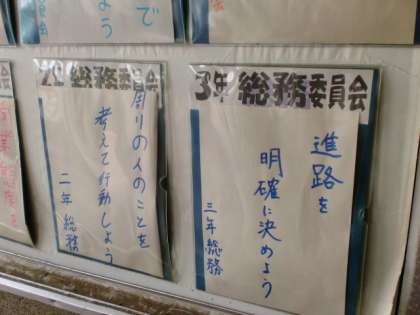 3年 総務委員会
進路を
明確に決めよう
三年 総務
2年 総務委員会
周りの人のことを
考えて行動しよう
二年 総務
会
で
よう